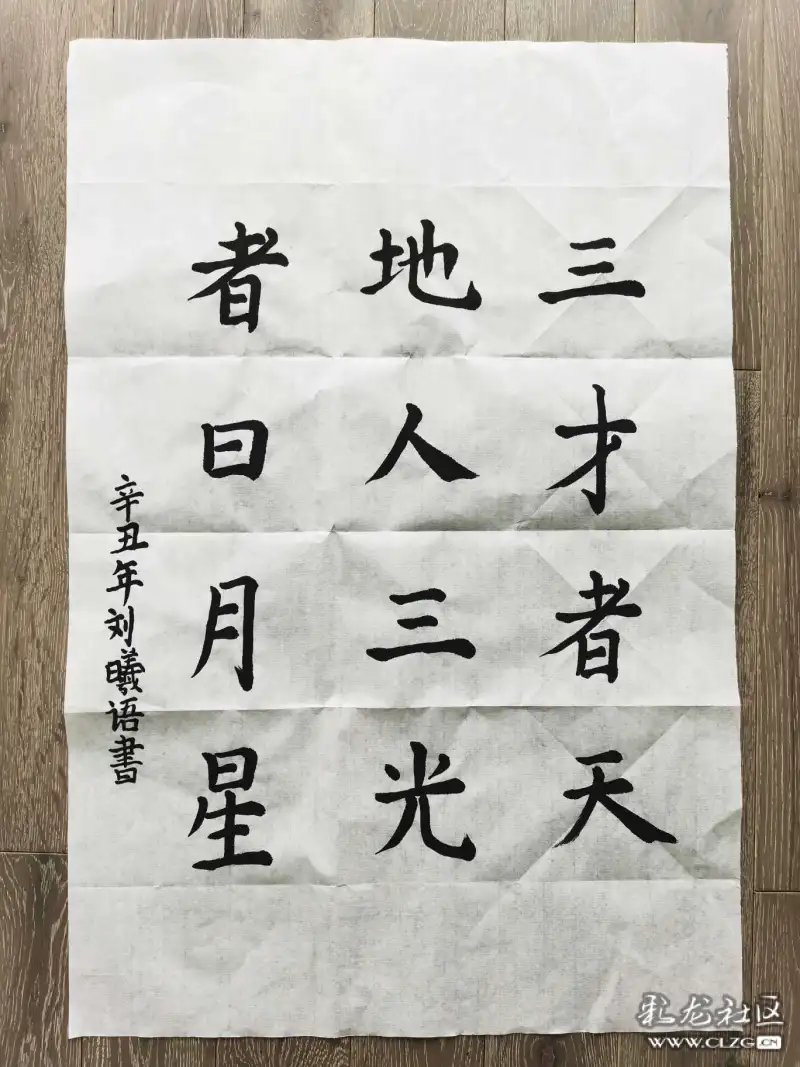 三才者天
地人三光
者日月星
辛丑年刘曦语書
彩龙社区
WWW.CLZG.CN